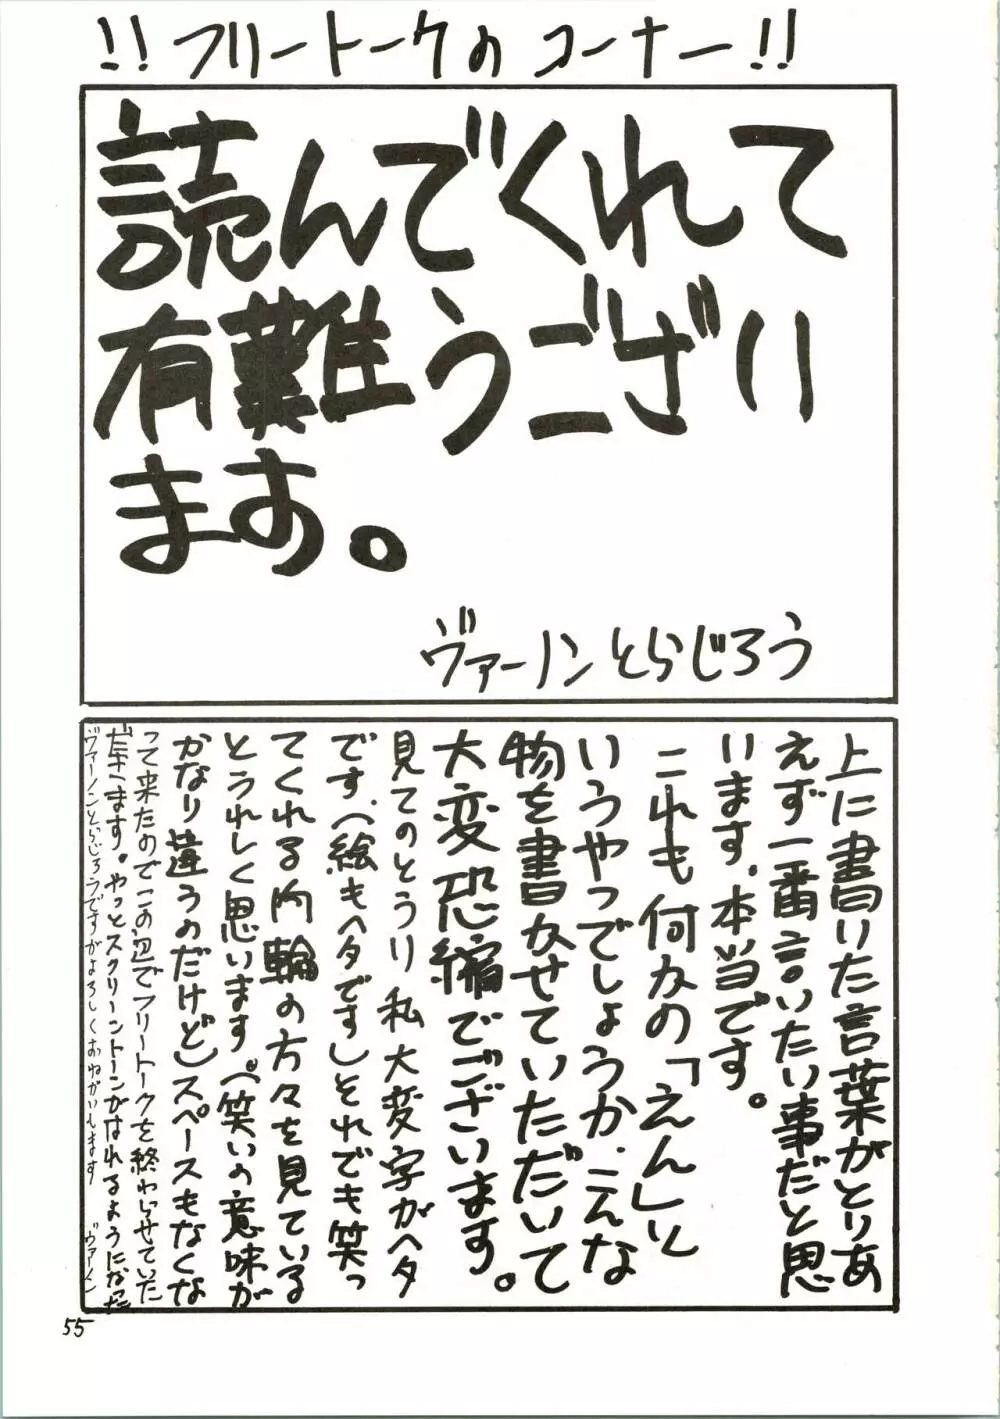 !!フリートークのコーナー!!
読んでくれて
有難うござい
ます。
ヴァーノンとらじろう
上に書いた言葉がとりあ
えず一番言いたい事だと思
います。本当です。
これも何かの「えん」と
いうやつでしょうか.こんな
物を書かせていただいて
大変恐縮でございます。
見てのとうり私大変字がヘタ
です、(絵もヘタです)それでも笑っ
てくれる内輪の方々を見ている
とうれしく思います。(笑いの意味が
かなり違うのだけど)スペースもなくな
って来たのでこの辺でフリートークを終わらせていた
だきます。やっとスクリーントーンがはれるようになった
ヴァーノンとらじろうですがよろしくおねがいします ヴァーノン
55